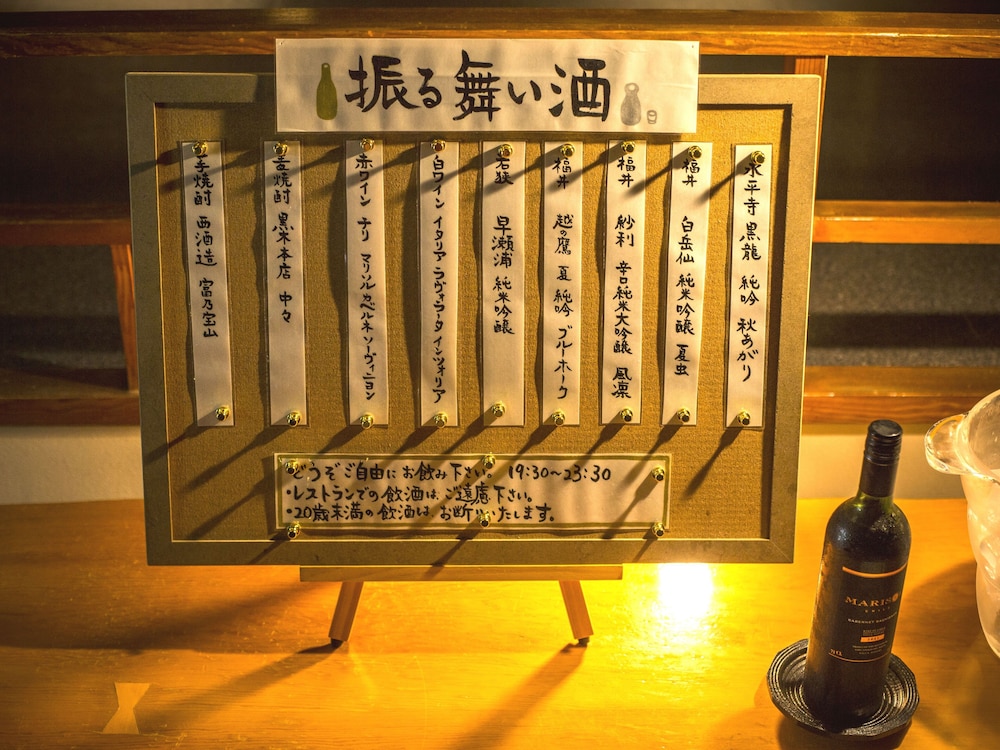 振る舞い酒
永平寺 黒龍 純吟 秋あがり
福井 白岳仙 純米吟醸 夏虫
福井 紗利 辛口純米大吟醸 風凛
福井 越の鷹 夏 純吟 ブルーホーク
若狭 早瀬浦 純米吟醸
白ワイン イタリア ラヴォラータ インツォリア
赤ワイン チリ マリソル カベルネ ソーヴィニヨン
麦焼酎 黒木本店 中々
芋焼酎 西酒造 富乃宝山
どうぞご自由にお飲み下さい。 19:30~23:30
・レストランでの飲酒は、ご遠慮下さい。
・20歳未満の飲酒は、お断りいたします。
MARISO
CHILE
CABERNET SAUVIGNON